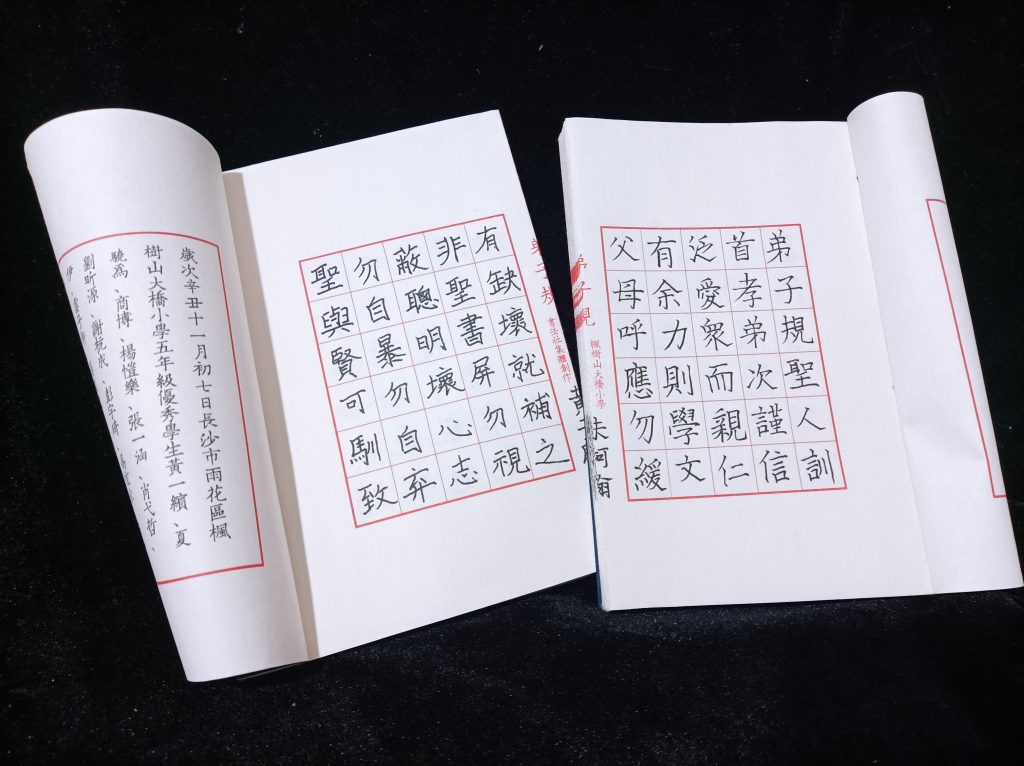 弟子規聖人訓
首孝弟次謹信
泛愛衆而親仁
有余力則學文
父母呼應勿緩
弟子規
楓樹山大橋小學
弟子規
書法社集體創作
有缺壞就補之
非聖書屏勿視
蔽聰明壞心志
勿自暴勿自弃
聖與賢可馴致
歲次辛丑十一月初七日長沙市雨花區楓
樹山大橋小學五年級優秀學生黃一繽、夏
驍爲、商博、楊愷樂、張一涵、肖弋哲、
劉昕源、謝杭成、彭宇